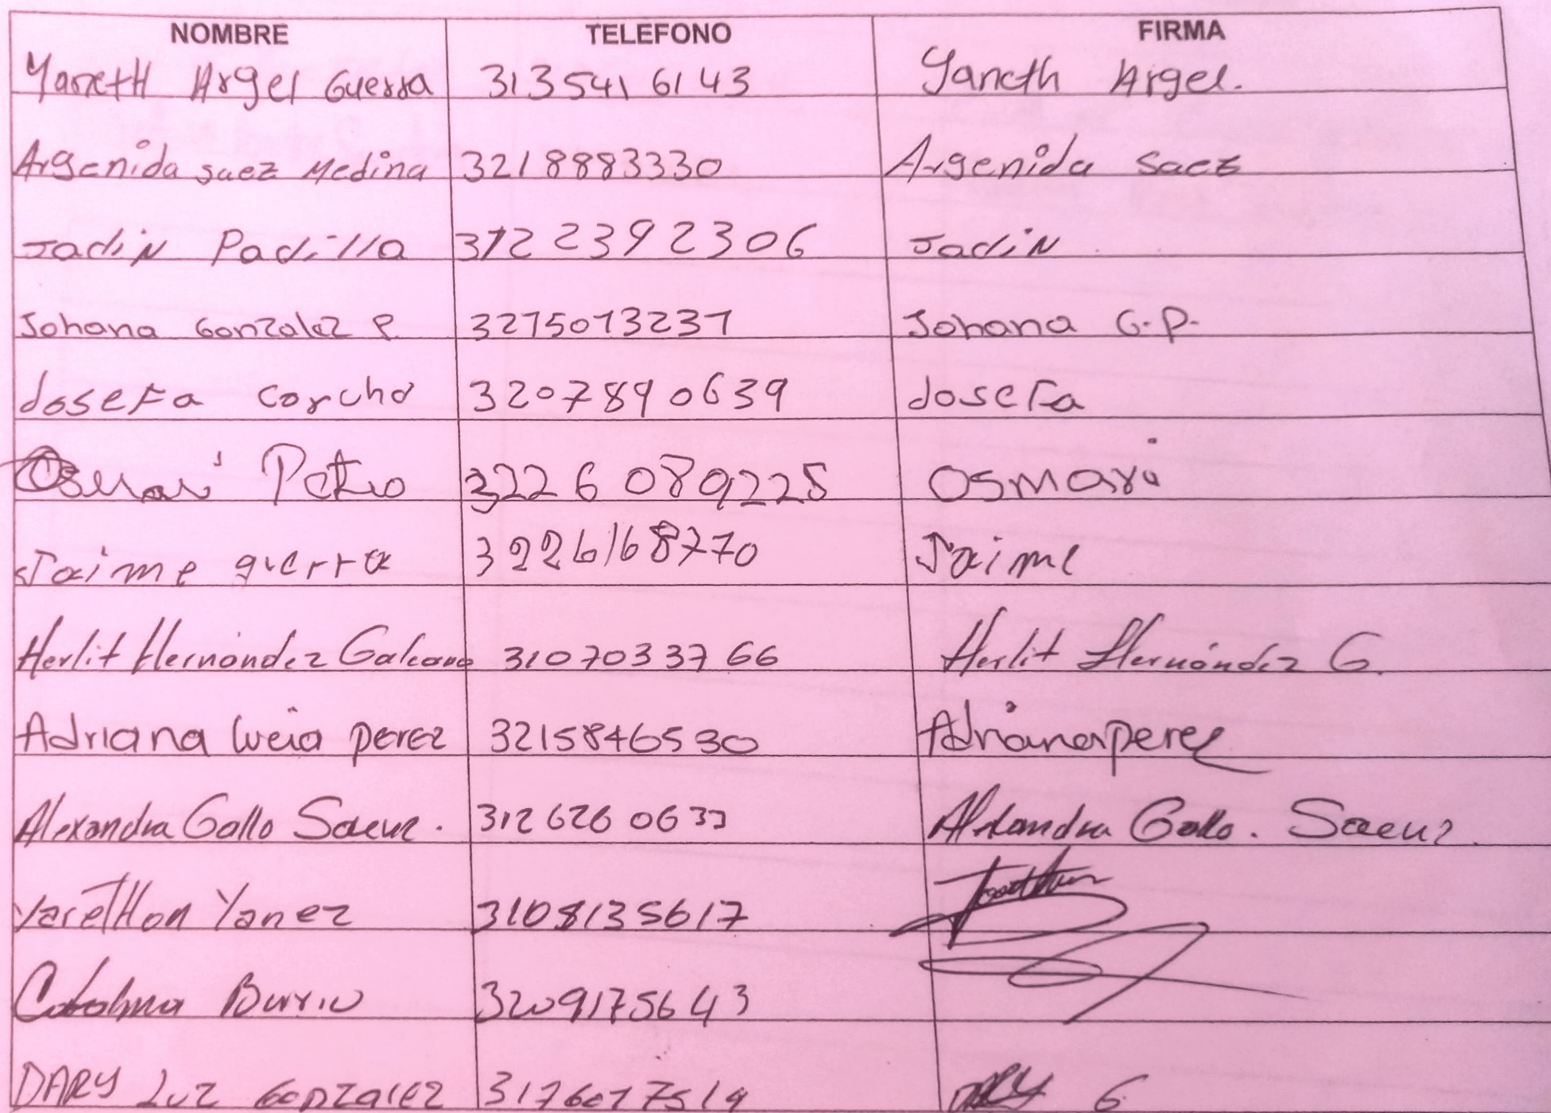 NOMBRE TELEFONO FIRMA
Yaneth Argel Guerra 3135416143 Yaneth Argel.
Argenida saez Medina 3218883330 Argenida saez
Jadin Padilla 3122392306 Jadin
Johana Gonzalez P. 3215013231 Johana G.P.
Josefa corcho 3207890639 Josefa
Osmari Petro 3226089225 Osmari
Jaime guerra 3226168770 Jaime
Herlit Hernández Galeano 3107033766 Herlit Hernández G.
Adriana lucia perez 3215846530 Adriana perez
Alexandra Gallo Saenz. 3126260633 Alexandra Gallo. Saenz.
Yarethon Yanez 3108135617
Catalina Burrio 3209175643
DARY Luz Gonzalez 3176017519 DARY G